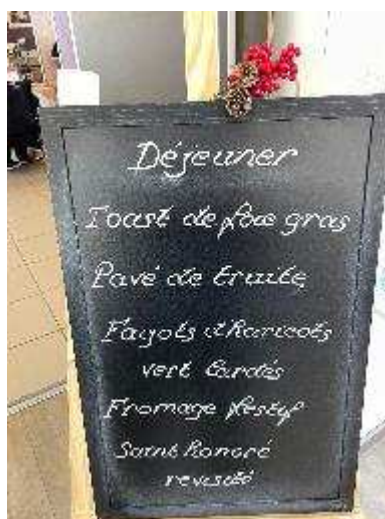 Déjeuner
Toast de foie gras
Pavé de truite
Fagots d'haricots
vert lardés
Fromage festif
Saint Honoré
revisité